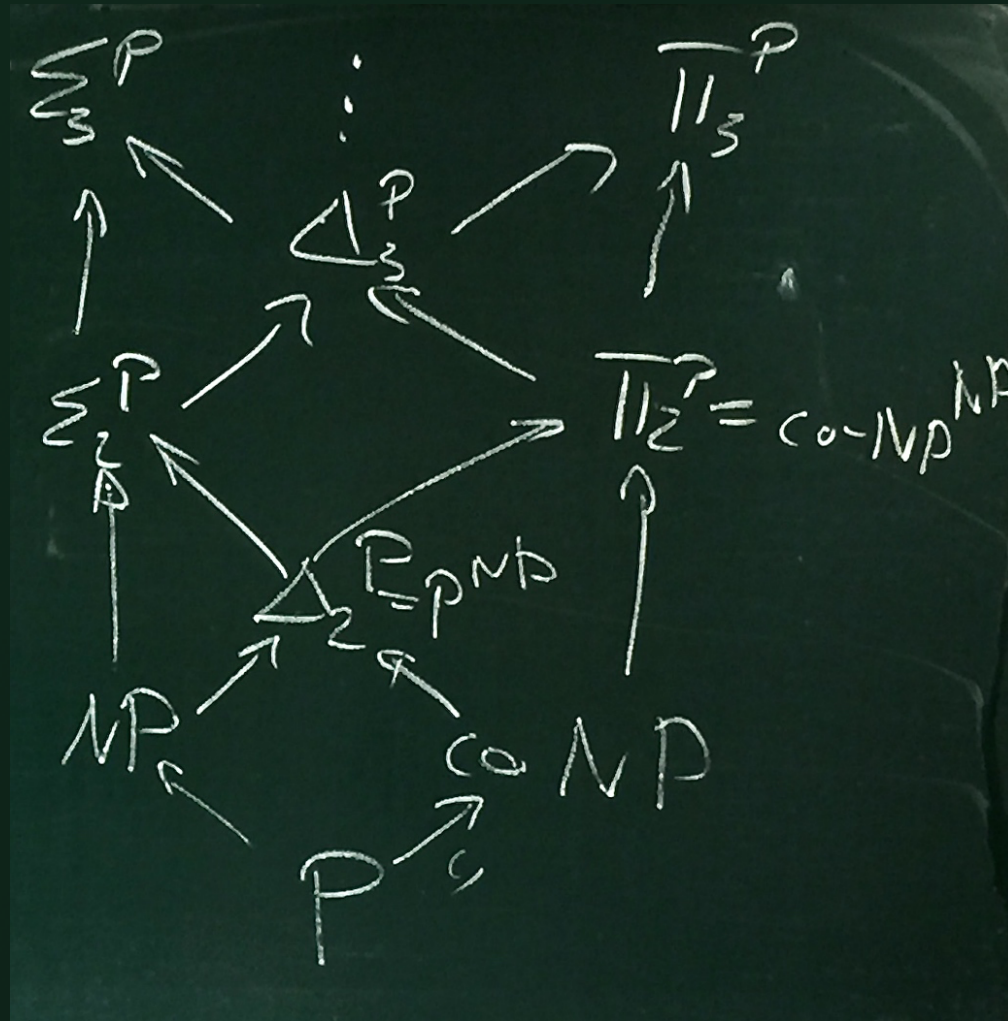 Σ₃ᴾ ⋮ Π₃ᴾ
Δ₃ᴾ
Σ₂ᴾ Π₂ᴾ = co-NP^NP
Δ₂ᴾ = P^NP
NP co NP
P